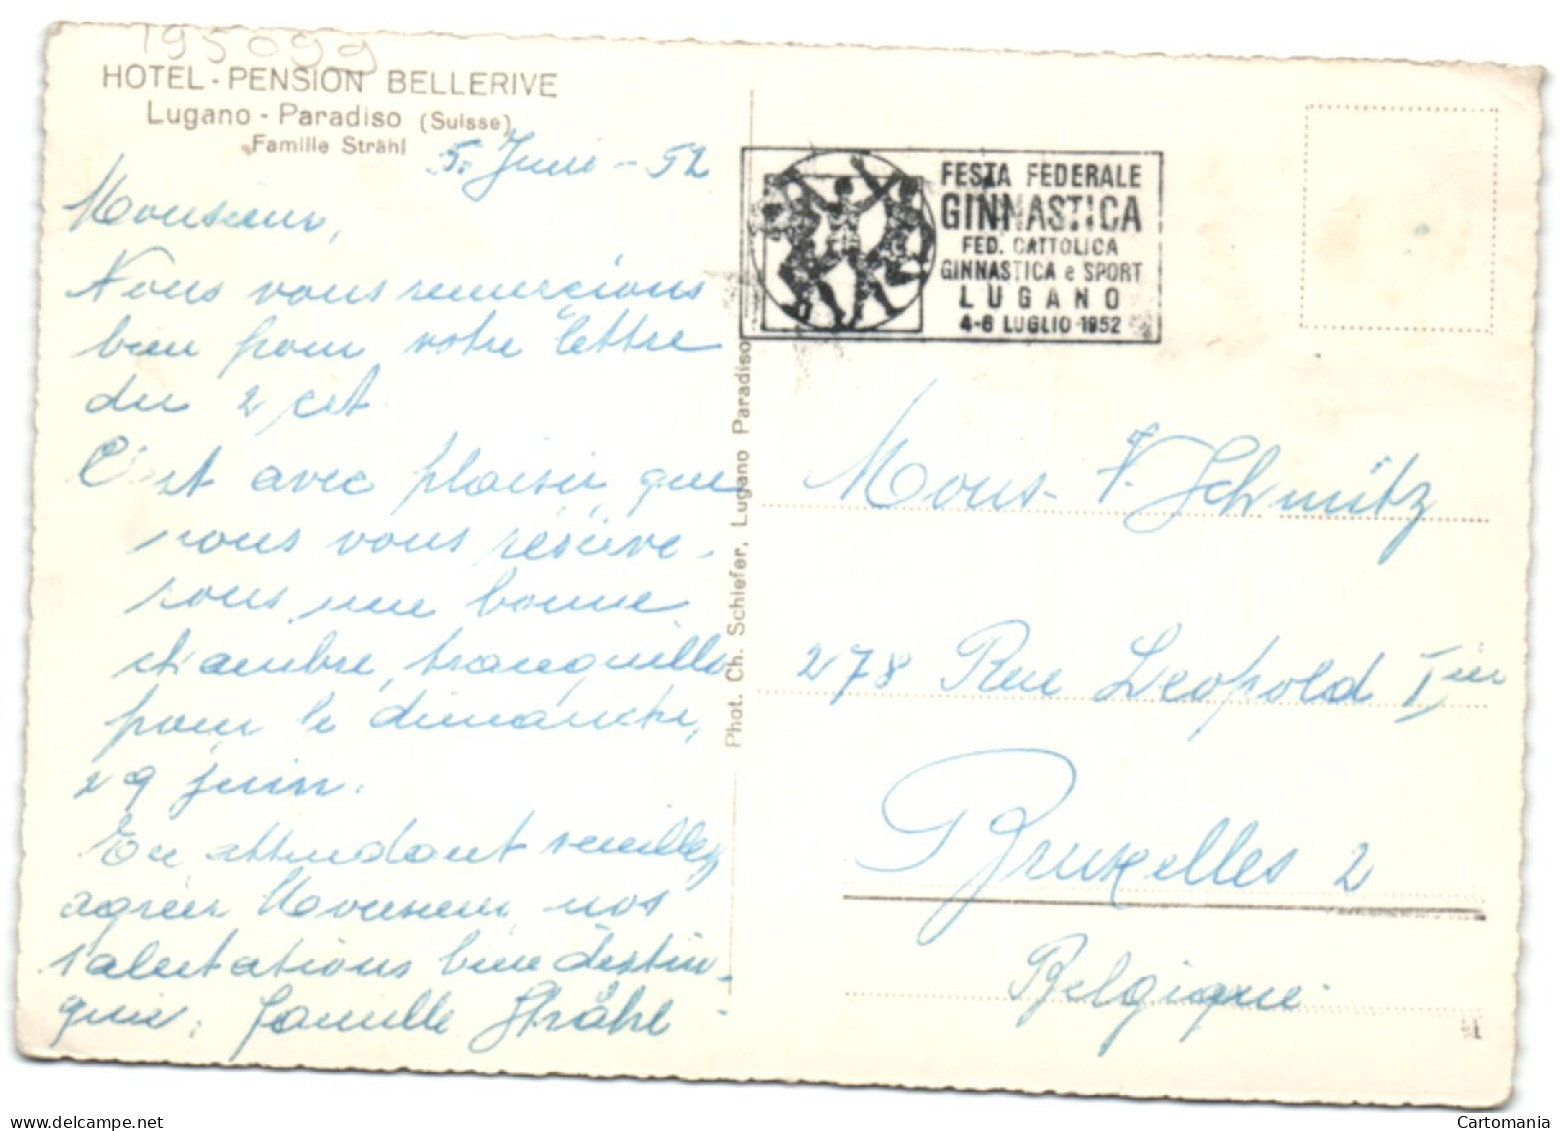 195099
HOTEL - PENSION BELLERIVE
Lugano - Paradiso (Suisse)
Famille Strähl
5. Juni - 52
Monsieur,
Nous vous remercions
bien pour votre lettre
du 2 ct.
C'est avec plaisir, que
nous vous réserve-
rons une bonne
chambre, tranquille
pour le dimanche,
29 juin.
En attendant veuillez
agréer Monsieur, nos
salutations bien distin-
guée. famille Strähl
Phot. Ch. Schiefer, Lugano Paradiso
FESTA FEDERALE
GINNASTICA
FED. CATTOLICA
GINNASTICA e SPORT
LUGANO
4-6 LUGLIO 1952
Mons. F. Schmitz
278 Rue Leopold Ier
Bruxelles 2
Belgique.
delcampe.net
Cartomania